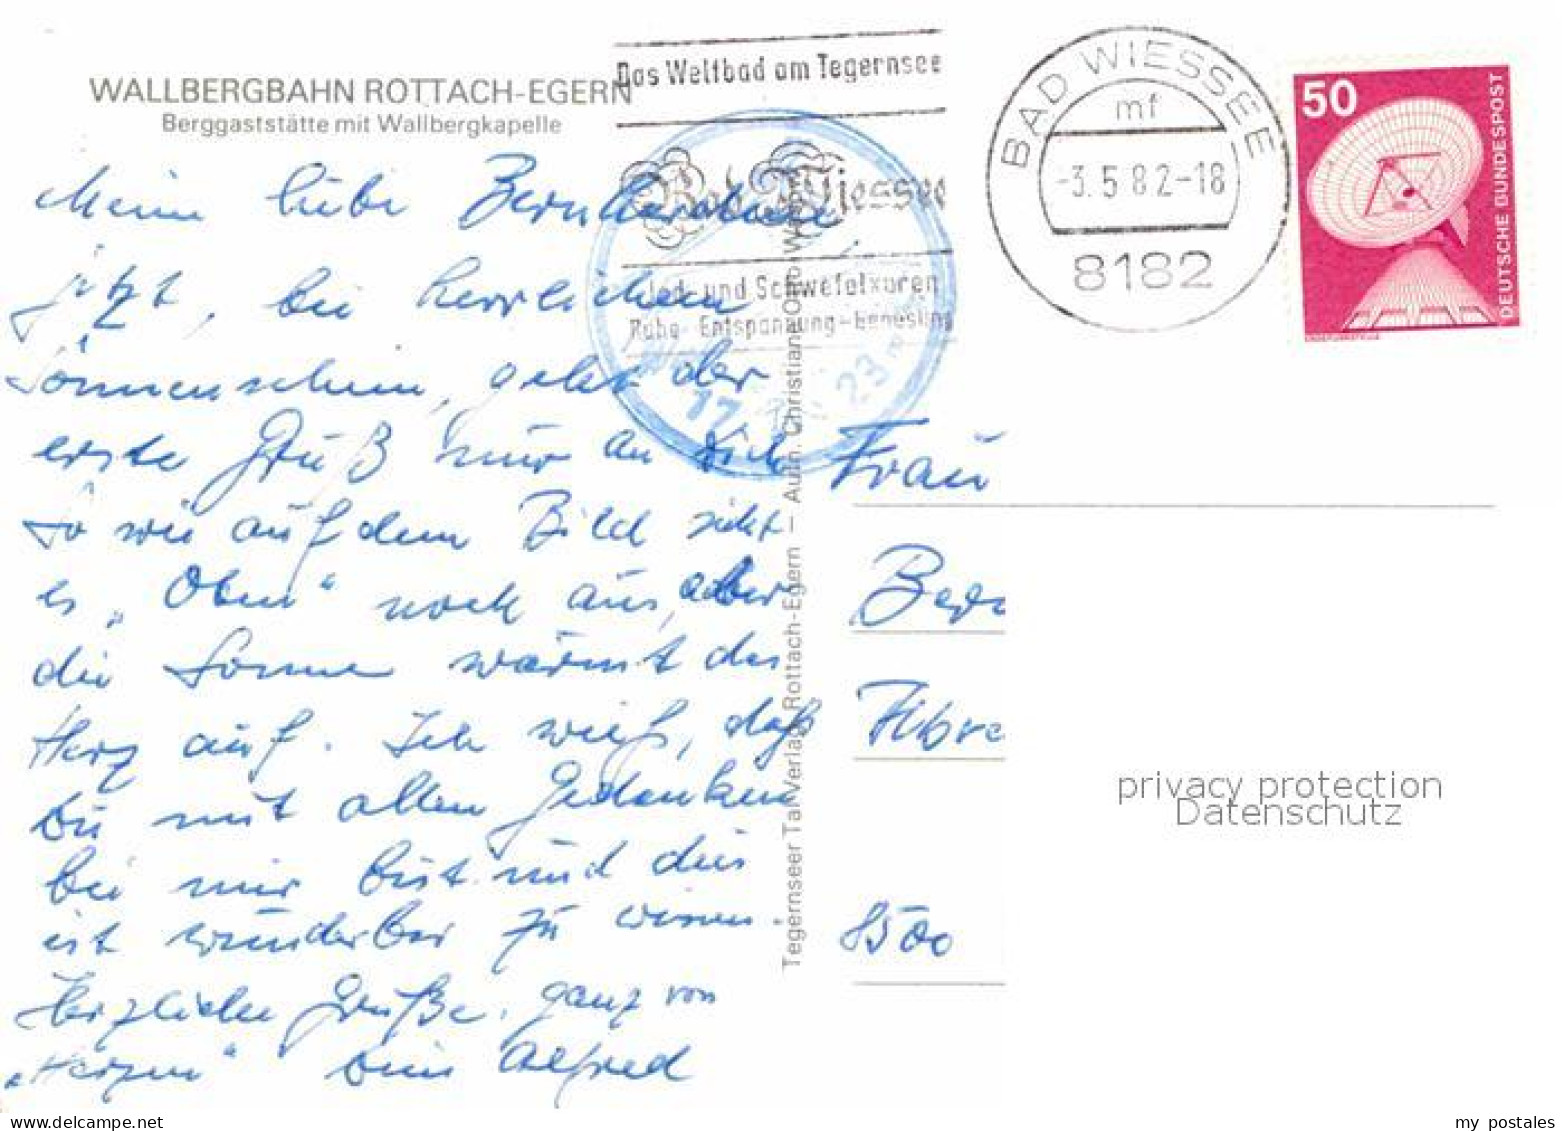 WALLBERGBAHN ROTTACH-EGERN
Berggaststätte mit Wallbergkapelle
Das Weltbad am Tegernsee
Bad Wiessee
Jod- und Schwefelkuren
Ruhe - Entspannung - Genesung
BAD WIESSEE
mf
-3.5.82-18
8182
50
DEUTSCHE BUNDESPOST
Meine liebe
jetzt, bei herrlichem
Sonnenschein, geht der
erste Gruß nur an Dich
So wie auf dem Bild sieht
es „Oben“ noch aus, aber
die Sonne wärmt das
Herz auf. Ich weiß, daß
Du mit allen Gedanken
bei mir bist und dies
ist wunderbar zu wissen
Herzliche Grüße, ganz von
„Herzen“ Dein Alfred
Tegernseer Tal Verlag, Rottach-Egern – Aufn. Christian
17
23
Frau
8500
privacy protection
Datenschutz
my postales